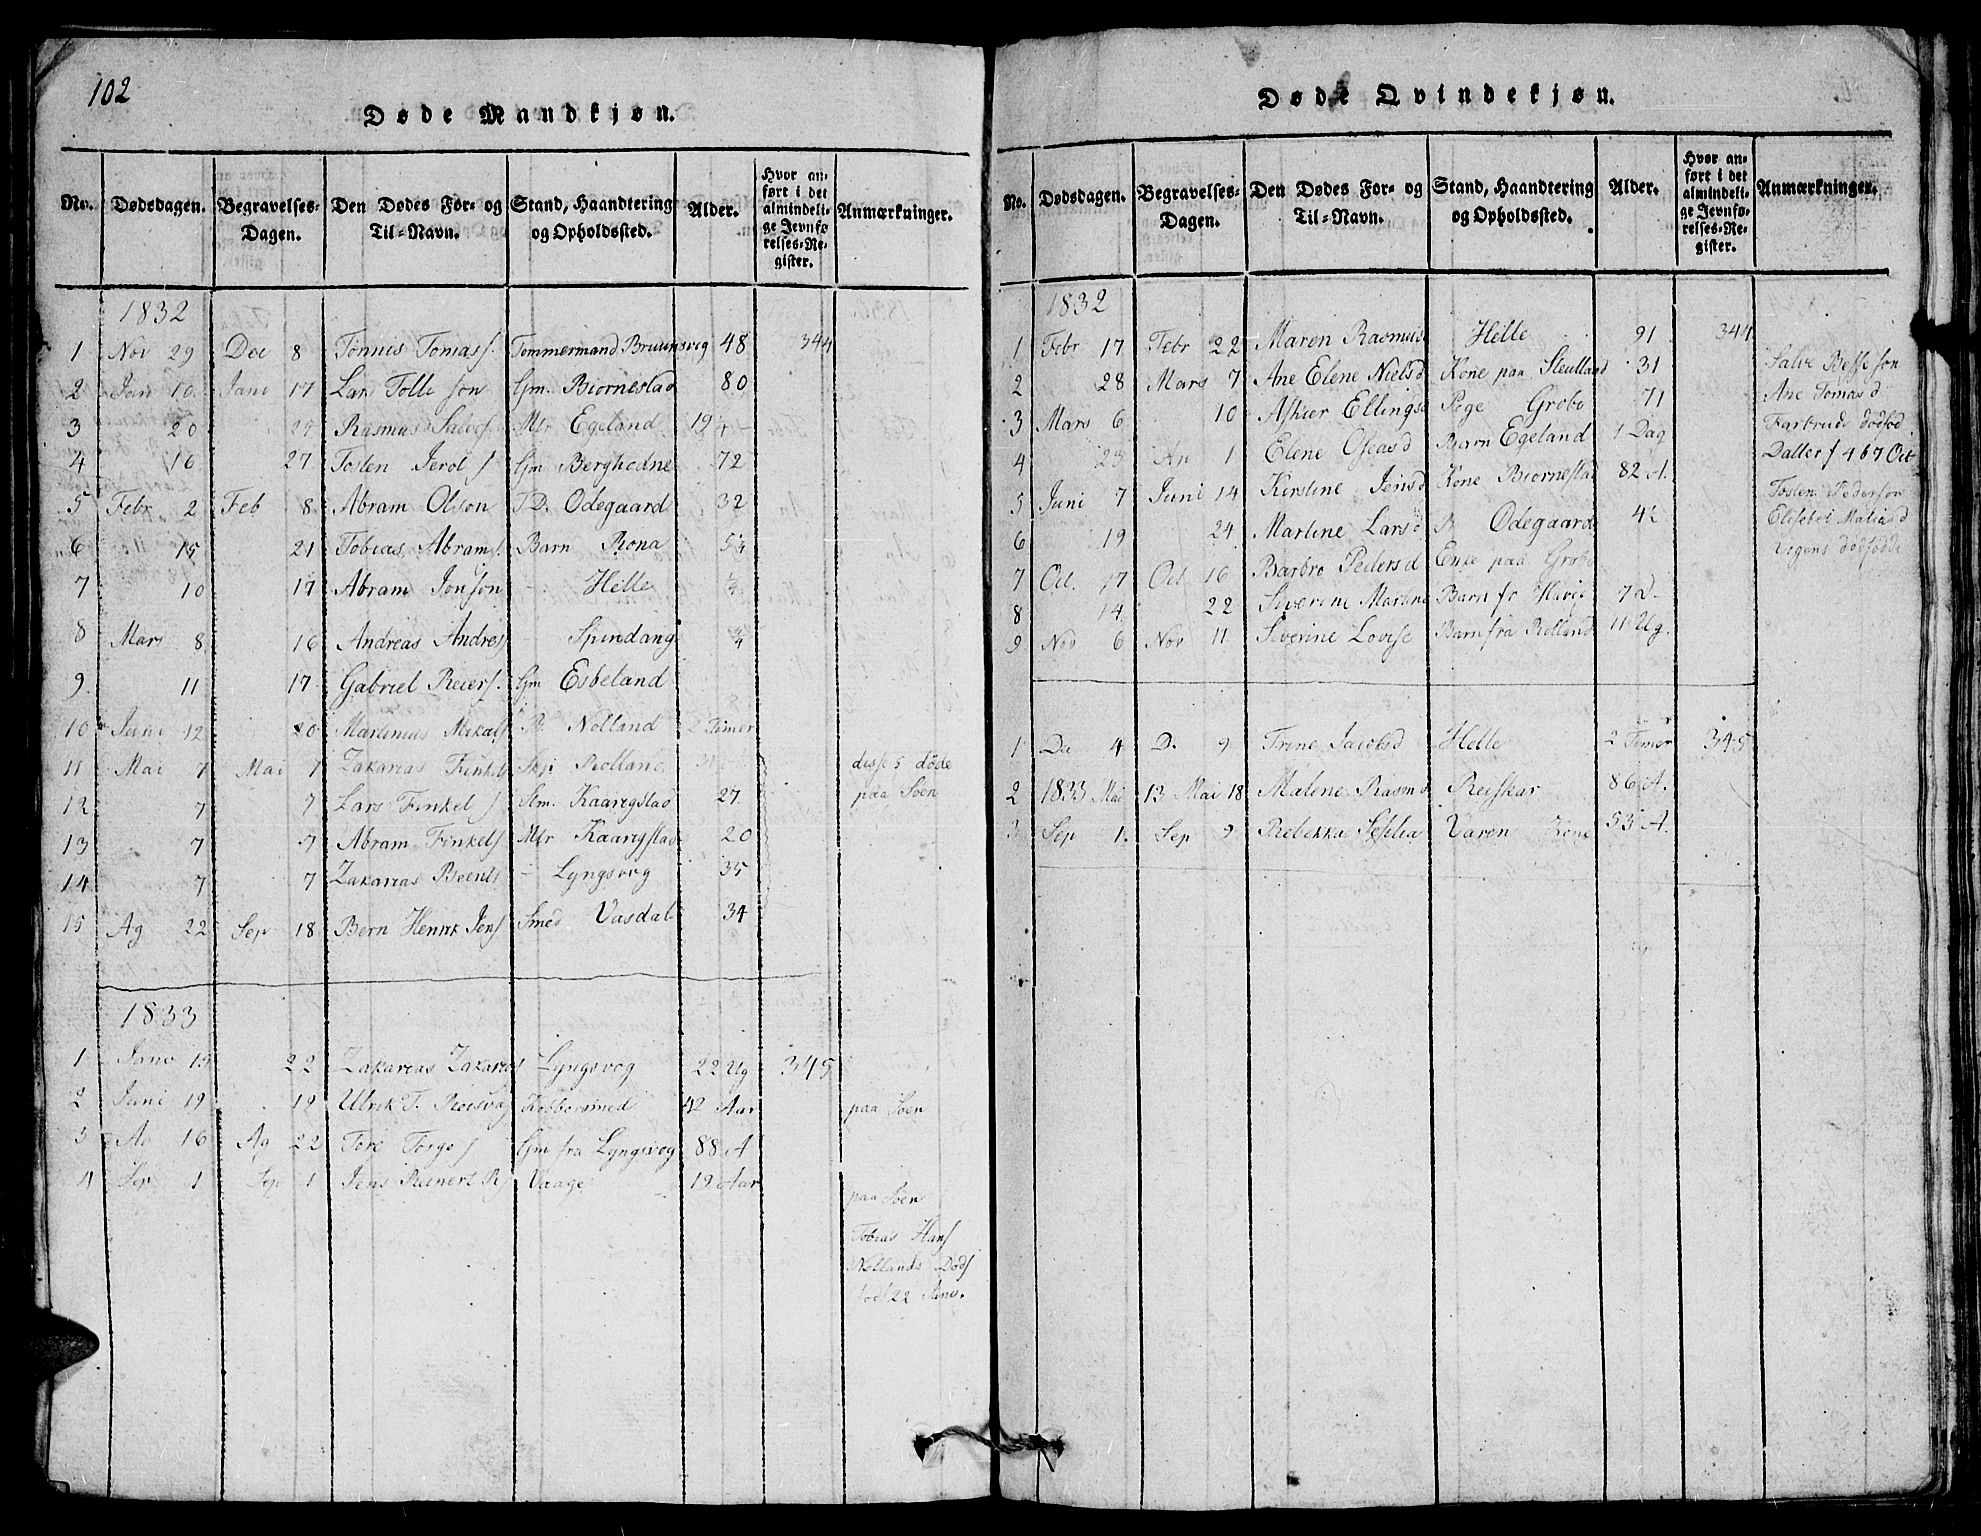 102
Døde Mandkjøn.
No. Dødsdagen. Begravelses-Dagen. Den Dødes For- og Til-Navn. Stand, Haandtering og Opholdssted. Alder. Hvor anført i det almindelige Jevnførelses-Register. Anmærkninger.
1832
1 Nov 29 Dec 8 Tönnes Tomas f. Tommermand Bruunsvig 48 344
2 Jan 10 Jani 17 Lars Tolle son Gm. Biornestad 80
3 20 Rasmus Salves Mtr Egeland 19
4 16 27 Tosten Jerol f Gm Berghedne 72
5 Febr 2 Feb 8 Abram Olson T.D. Odegaard 32
6 15 21 Tobias Abrams. Barn Rona
7 10 17 Abram Jonson - Helle
8 Mars 8 16 Andreas Andres - Spindang
9. 11 17 Gabriel Reiers. Gm Esbeland
10 Jani 12 20 Martinius Mikals B. Nolland 2 Timer
11 Mai 7 Mai 7 Zakarias Finkels Skp Rolland disse 5 döde
12 7 7 Lars Finkel f Stm. Kaarigstad 27 paa Söen
13 7 7 Abram Finkels Mtr Kaarigstad 20
14 7 7 Zakarias Beents - Lyngsvog 35
15 Ag 22 Sep 18 Bern Henrik Jens Smed Vasdal 34
1833
1 Janv 19 22 Zakarias Zakarias Lyngsvog 22 Ug 345
2 Juni 19 19 Ulrik T. Reisvaf Kobbersmed 42 Aar paa Söen
3 Ag 16 Ag 22 Tore Torges Gm fra Lyngsvog 88 A
4 Sep 1 Sep 1 Jens Reinert R Vaage 19 Aar
paa Söen
Tobias Hans
Nollands Döds
föd 22 Janv.
Døde Qvindekjøn.
No. Dødsdagen. Begravelses-Dagen. Den Dødes For- og Til-Navn. Stand, Haandtering og Opholdssted. Alder. Hvor anført i det almindelige Jevnførelses-Register. Anmærkninger.
1832
1 Febr 17 Febr 22 Maren Rasmus Helle 91 344
2 28 Mars 7 Ane Elene Niels d Kone paa Steulland 31 Salve Besseson
3 Mars 6 10 Askier Ellings Pige Grobo 71 Ane Tomas d
4 23 Ap 1 Elene Oseas d Barn Egeland 1 Dag Fartrude dödföd
5 Juni 7 Juni 14 Kirstine Jens d Kone Biornestad 82 A. Datter f 467 Oct
6 19 24 Martine Lars d Odegaard Tosten Pederson
7 Oct. 17 Oct 16 Barbro Peders d Enke paa Grobo Elisebet Matias d
8 14 22 Siverine Martine Barn fr Haige 7 D. dödfödde
9 Nov 6 Nov 11 Siverine Lovise Barn fra Rolland 11 Ug.
1 De 4 D. 9 Trine Jacobs d Helle 2 Timer 345
2 1833 Mai 13 Mai 18 Malene Rasmd Reiskar 86 A.
3 Sep 1. Sep 9 Rebekka Sophia Varen Kone 53 A.